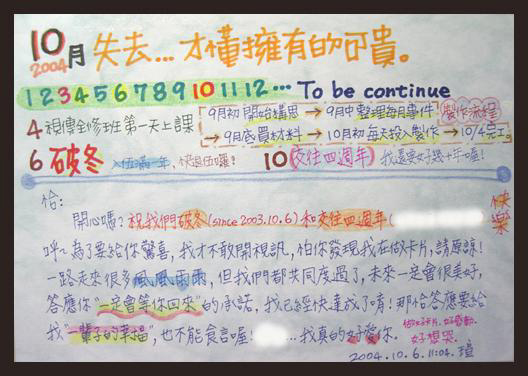 10月 失去...才懂擁有的可貴。
2004
1 2 3 4 5 6 7 8 9 10 11 12 ... To be continue
4 視傳全修班第一天上課
9月初開始構思 → 9月中整理每月事件 製作流程
→ 9月底買材料 → 10月初每天投入製作 → 10/4完工。
6 破冬 入伍滿一年，快退伍囉！ 10 交往四週年 我還要好幾十年喔！
恰：
開心嗎？祝我們破冬(since 2003.10.6)和交往四週年( 快樂
呼~為了要給你驚喜，我才不敢開視訊，怕你發現我在做卡片，請原諒！
一路走來很多風風雨雨，但我們都共同度過了，未來一定會很美好，
答應你"一定會等你回來"的承諾，我已經快達成了唷！那恰答應要給
我"一輩子的幸福"，也不能食言喔！ ...我真的好愛你。
做好卡片.好感動.
好想哭.
2004.10.6.11:04.